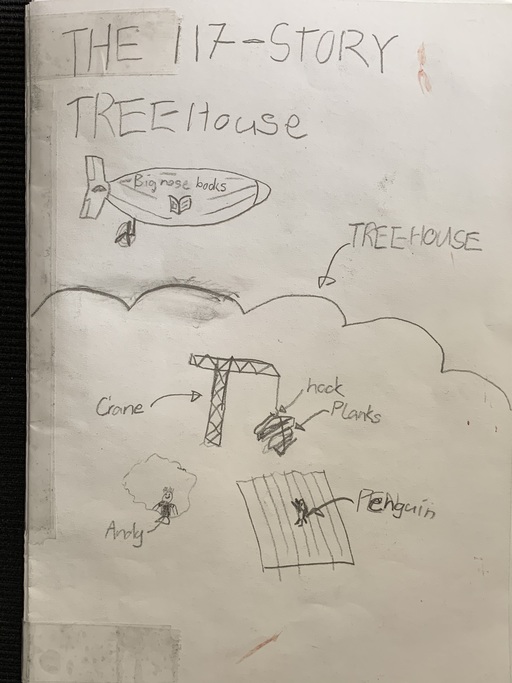 THE 117-STORY
TREEHouse
Big nose books
TREEHOUSE
Crane
hook
Planks
Penguin
Andy